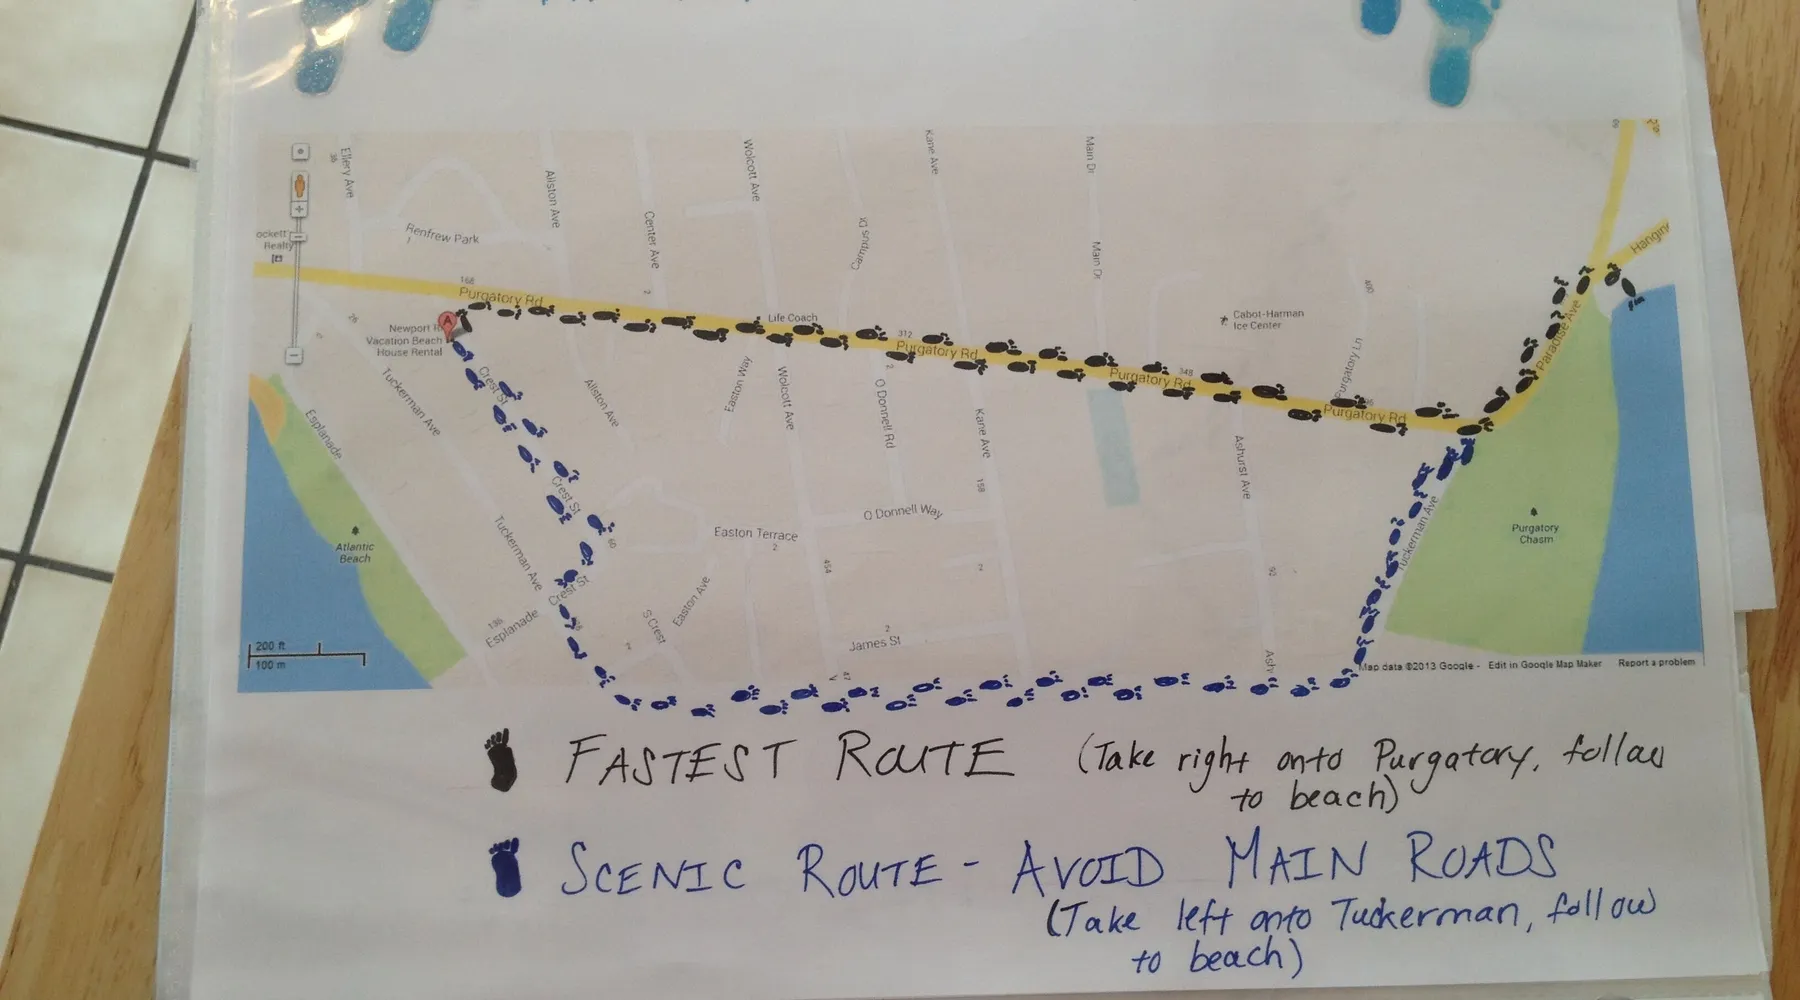 Ellery Ave
Allston Ave
Center Ave
Wolcott Ave
Campus Dr
Kane Ave
Main Dr
Main Dr
Renfrew Park
ockett
Realty
168
Purgatory Rd
Hanging
Newport RI
Vacation Beach
House Rental
A
Life Coach
312
Purgatory Rd
Cabot-Harman
Ice Center
400
Paradise Ave
348
Purgatory Rd
Purgatory Ln
Purgatory Rd
26
Crest St
Tuckerman Ave
Allston Ave
Easton Way
Wolcott Ave
O Donnell Rd
Kane Ave
Ashurst Ave
Esplanade
Crest St
158
O Donnell Way
Tuckerman Ave
Purgatory
Chasm
Atlantic
Beach
Tuckerman Ave
Easton Terrace
2
60
Crest St
454
2
92
186
Esplanade
S Crest
Easton Ave
James St
2
47
Ash
200 ft
100 m
Map data ©2013 Google - Edit in Google Map Maker Report a problem
FASTEST ROUTE (Take right onto Purgatory, follow
to beach)
SCENIC ROUTE - AVOID MAIN ROADS
(Take left onto Tuckerman, follow
to beach)